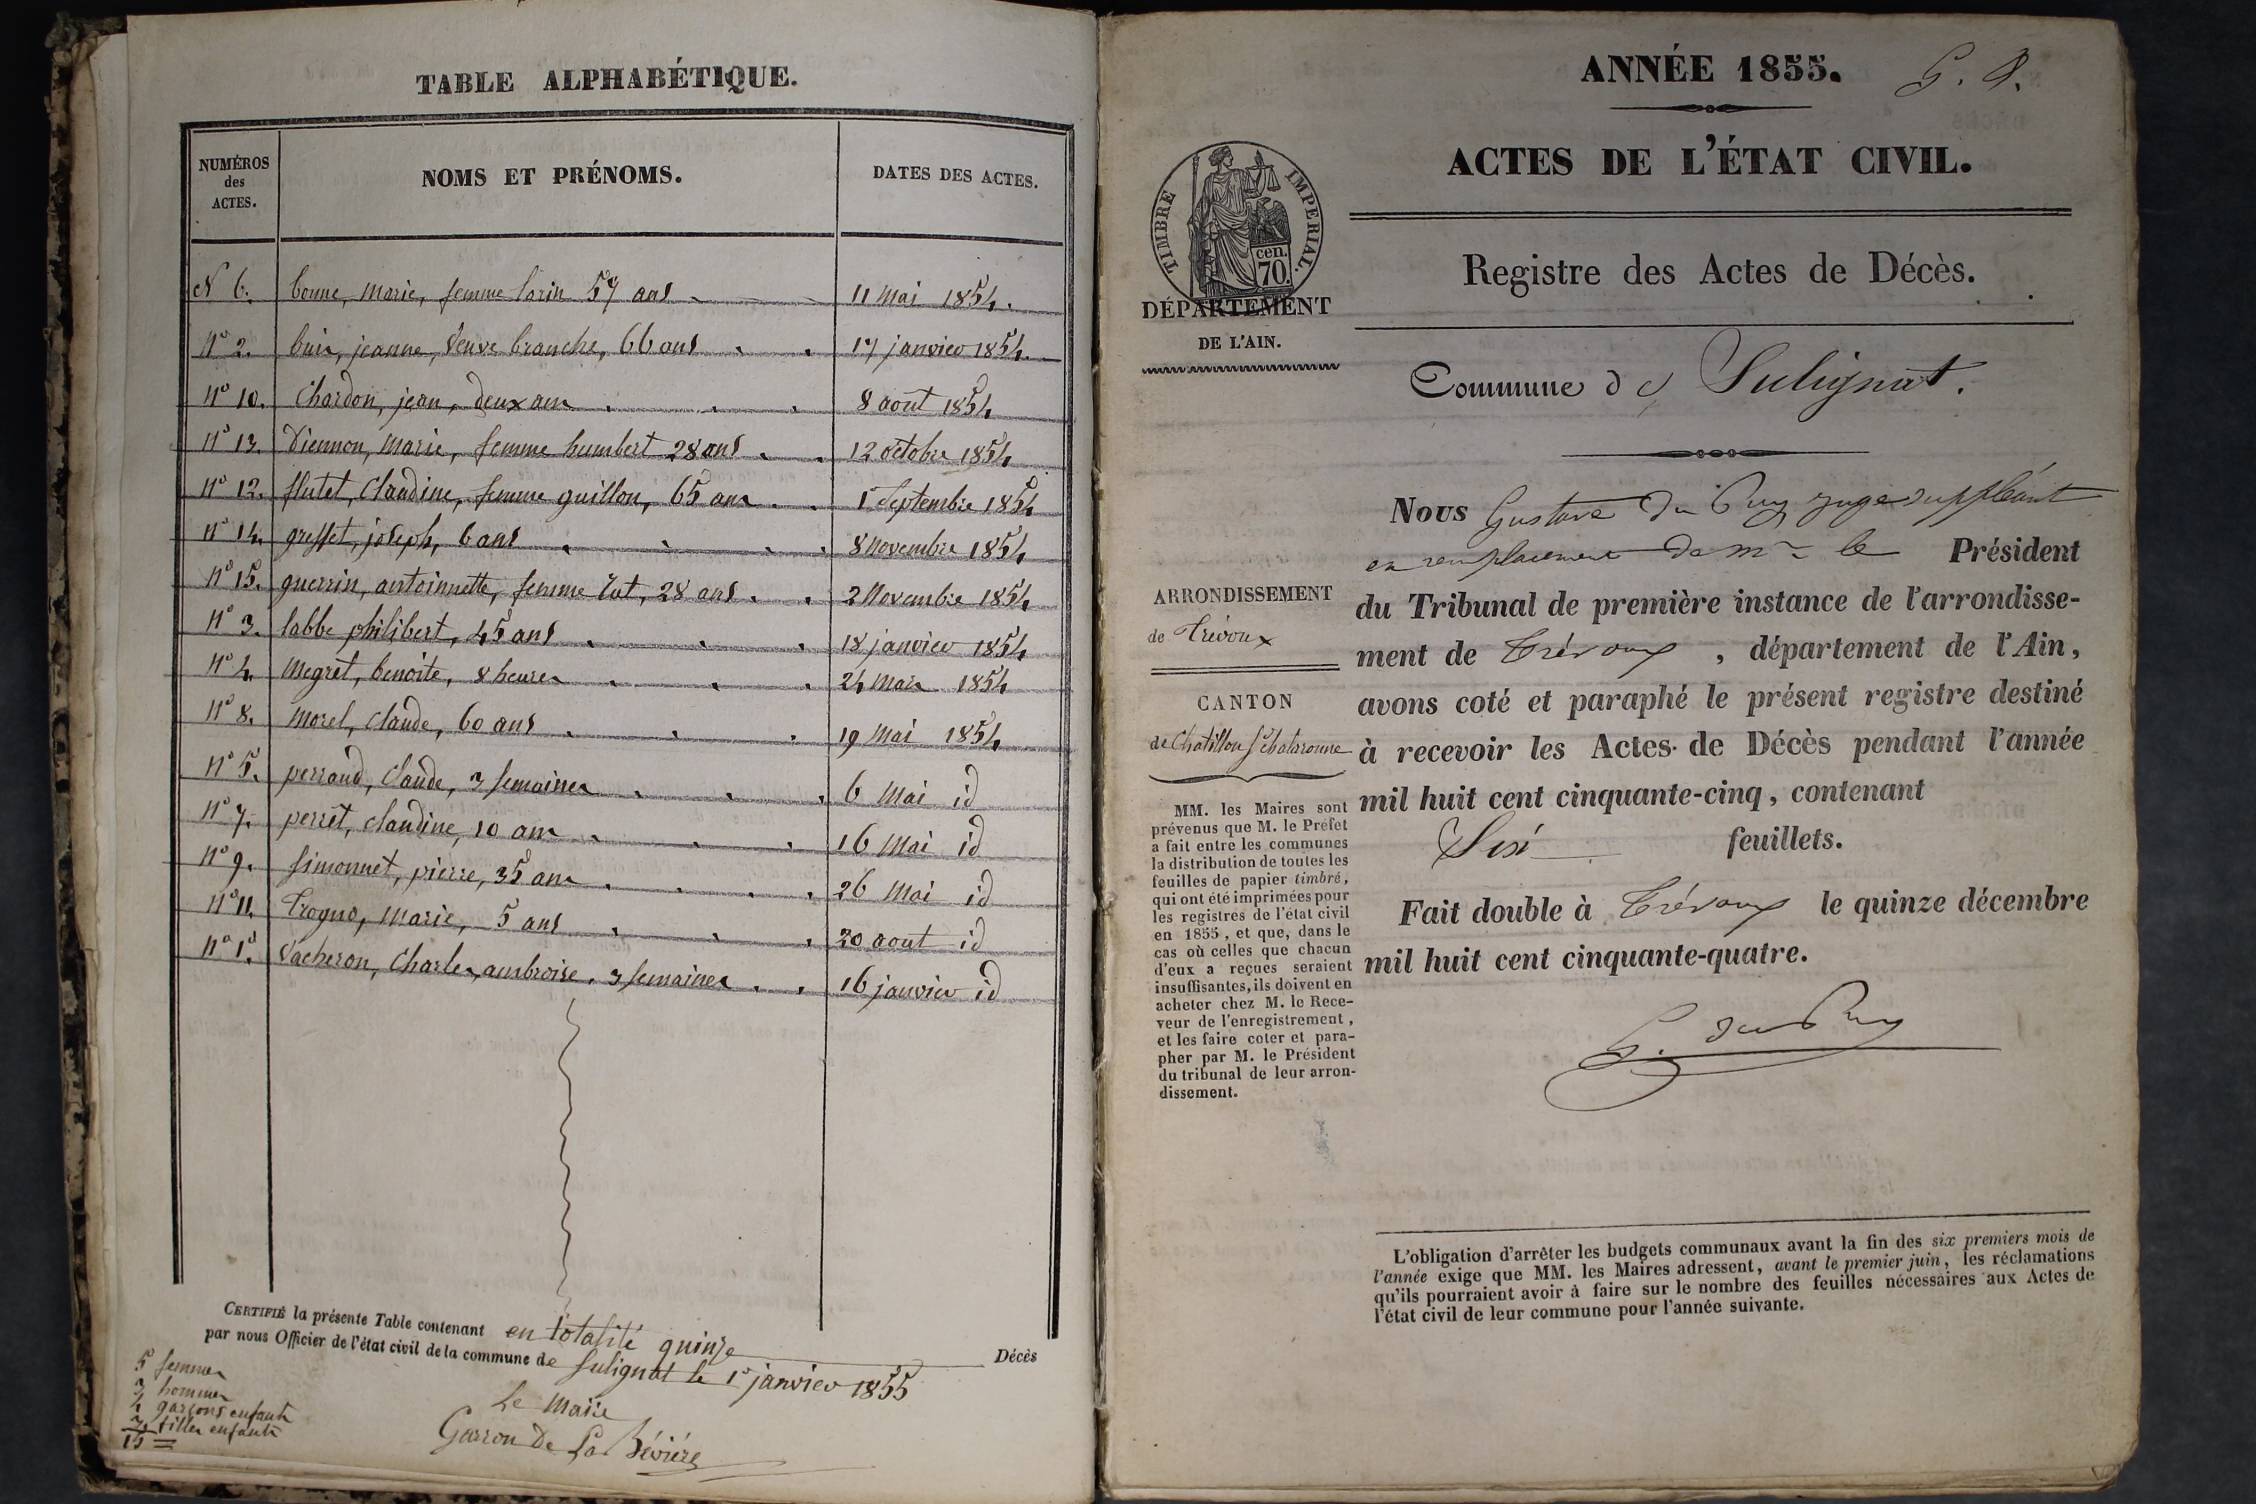 TABLE ALPHABÉTIQUE.
NUMÉROS
des
ACTES.
NOMS ET PRÉNOMS.
DATES DES ACTES.
N 6. bonne, marie, femme 59 ans 11 mai 1854.
N° 2. buir, jeanne, veuve branche, 66 ans 17 janvier 1854.
N° 10. Chardon, jean, deux ans 8 aout 1854
N° 13. Diennon, marie, femme humbert 28 ans 12 octobre 1854
N° 12. flutet, Claudine, femme guillon, 65 ans 1er Septembre 1854
N° 14. greffet, joseph, 6 ans 8 Novembre 1854
N° 15. guerrin, antoinnette, femme 28 ans 2 Novembre 1854
N° 3. labbe philibert, 45 ans 18 janvier 1854
N° 4. Megret, benoite, 8 heures 24 mars 1854
N° 8. Morel, Claude, 60 ans 19 Mai 1854
N° 5. perraud, Claude, 3 semaines 6 Mai id
N° 7. perret, claudine, 10 ans 16 Mai id
N° 9. simonnet, pierre, 35 ans 26 Mai id
N° 11. marie, 5 ans 20 aout id
N° 1er Vacheron, Charles, ambroise, 3 semaines 16 janvier id
CERTIFIÉ la présente Table contenant en totalité quinze Décès
par nous Officier de l'état civil de la commune de Sulignat le 1er janvier 1855
Le Maire
Garron De La Bévière
5 femmes
3 hommes
4 garçons enfants
3 filles enfants
15
ANNÉE 1855.
ACTES DE L'ÉTAT CIVIL.
TIMBRE IMPERIAL.
cen.
70.
DÉPARTEMENT
DE L'AIN.
Registre des Actes de Décès.
Commune de Sulignat.
ARRONDISSEMENT
de Trévoux
CANTON
de Chatillon Chalaronne
MM. les Maires sont
prévenus que M. le Préfet
a fait entre les communes
la distribution de toutes les
feuilles de papier timbré,
qui ont été imprimées pour
les registres de l'état civil
en 1855, et que, dans le
cas où celles que chacun
d'eux a reçues seraient
insuffisantes, ils doivent en
acheter chez M. le Rece-
veur de l'enregistrement,
et les faire coter et para-
pher par M. le Président
du tribunal de leur arron-
dissement.
Nous Gustave du Puy juge suppléant
en remplacement de Mr le Président
du Tribunal de première instance de l'arrondisse-
ment de Trévoux, département de l'Ain,
avons coté et paraphé le présent registre destiné
à recevoir les Actes de Décès pendant l'année
mil huit cent cinquante-cinq, contenant
Six feuillets.
Fait double à Trévoux le quinze décembre
mil huit cent cinquante-quatre.
G. du Puy
L'obligation d'arrêter les budgets communaux avant la fin des six premiers mois de
l'année exige que MM. les Maires adressent, avant le premier juin, les réclamations
qu'ils pourraient avoir à faire sur le nombre des feuilles nécessaires aux Actes de
l'état civil de leur commune pour l'année suivante.